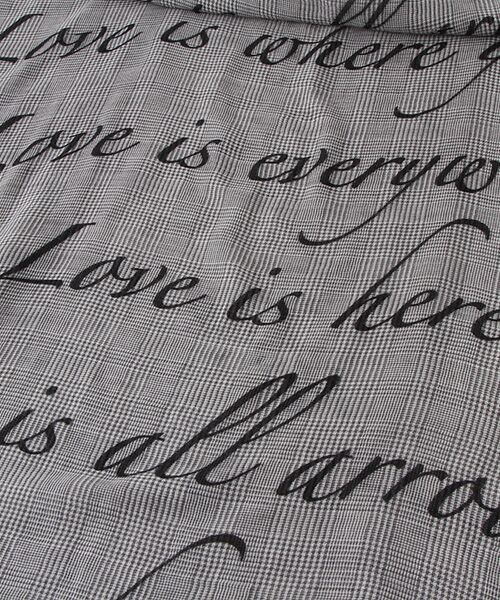 Love is where
Love is everyw
Love is here
is all arrou